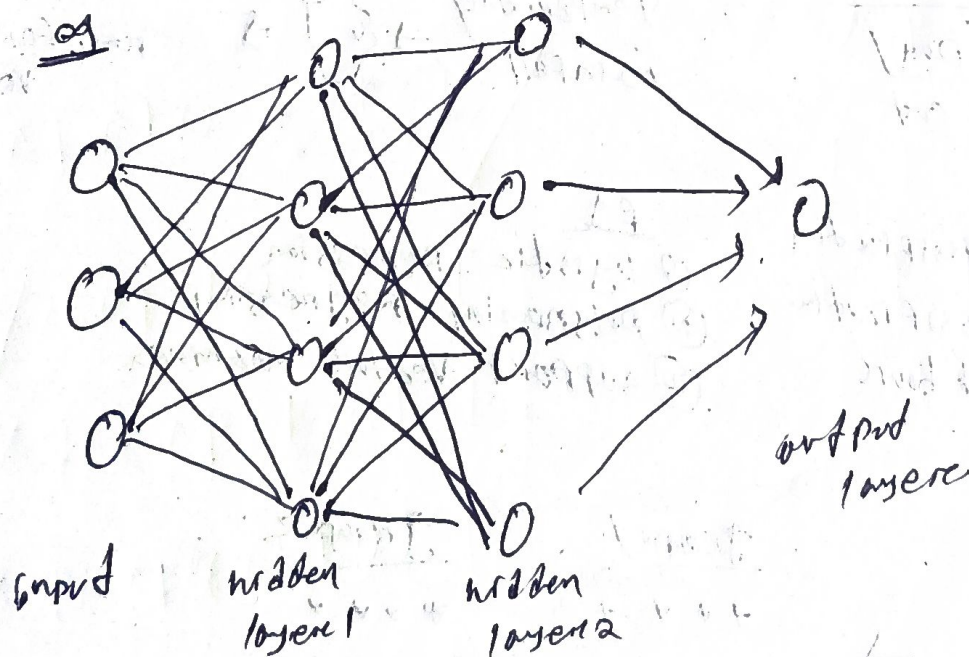 input
hidden
layere 1
hidden
layere 2
output
layere